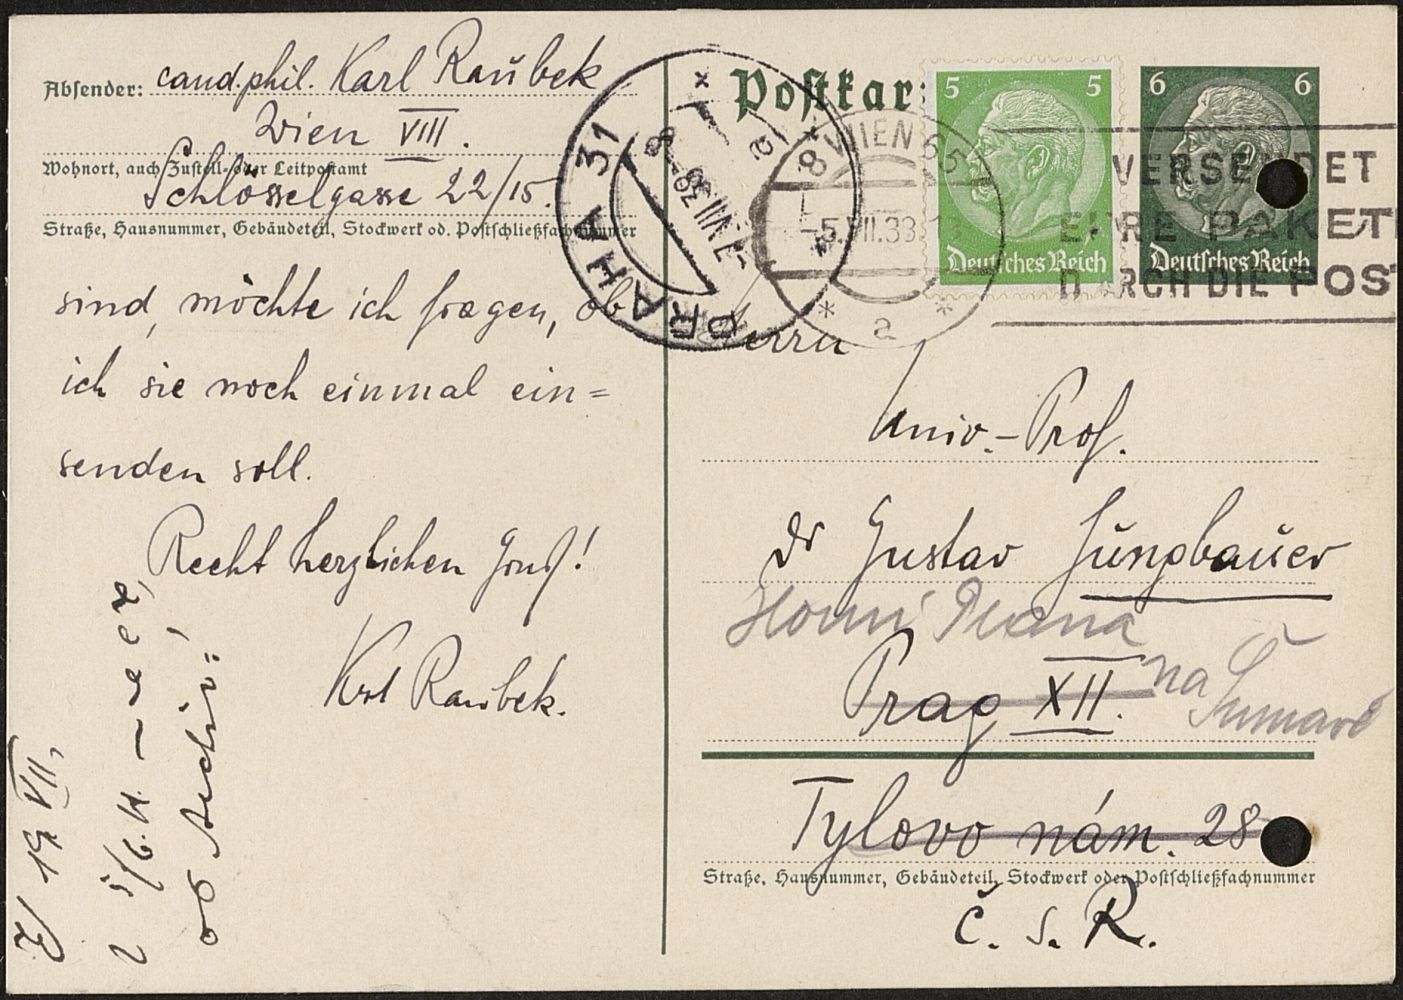 Absender: cand. phil. Karl Raubek
Wien VIII.
Wohnort, auch Zustell- oder Leitpostamt
Schlösselgasse 22/15.
Straße, Hausnummer, Gebäudeteil, Stockwerk od. Postschließfachnummer
sind, möchte ich fragen, ob
ich sie noch einmal ein=
senden soll.
Recht herzlichen Gruß!
Karl Raubek.
19. VII.
Postkar
5 5
Deutsches Reich
6 6
Deutsches Reich
PRAHA 31
8 WIEN 65
a
VERSENDET
EURE PAKETE
DURCH DIE POST
Herrn
Univ.-Prof.
Dr Gustav Jungbauer
Horní Planá
Prag XII.
na Šumavě
Tylovo nám. 28
Straße, Hausnummer, Gebäudeteil, Stockwerk oder Postschließfachnummer
Č. S. R.